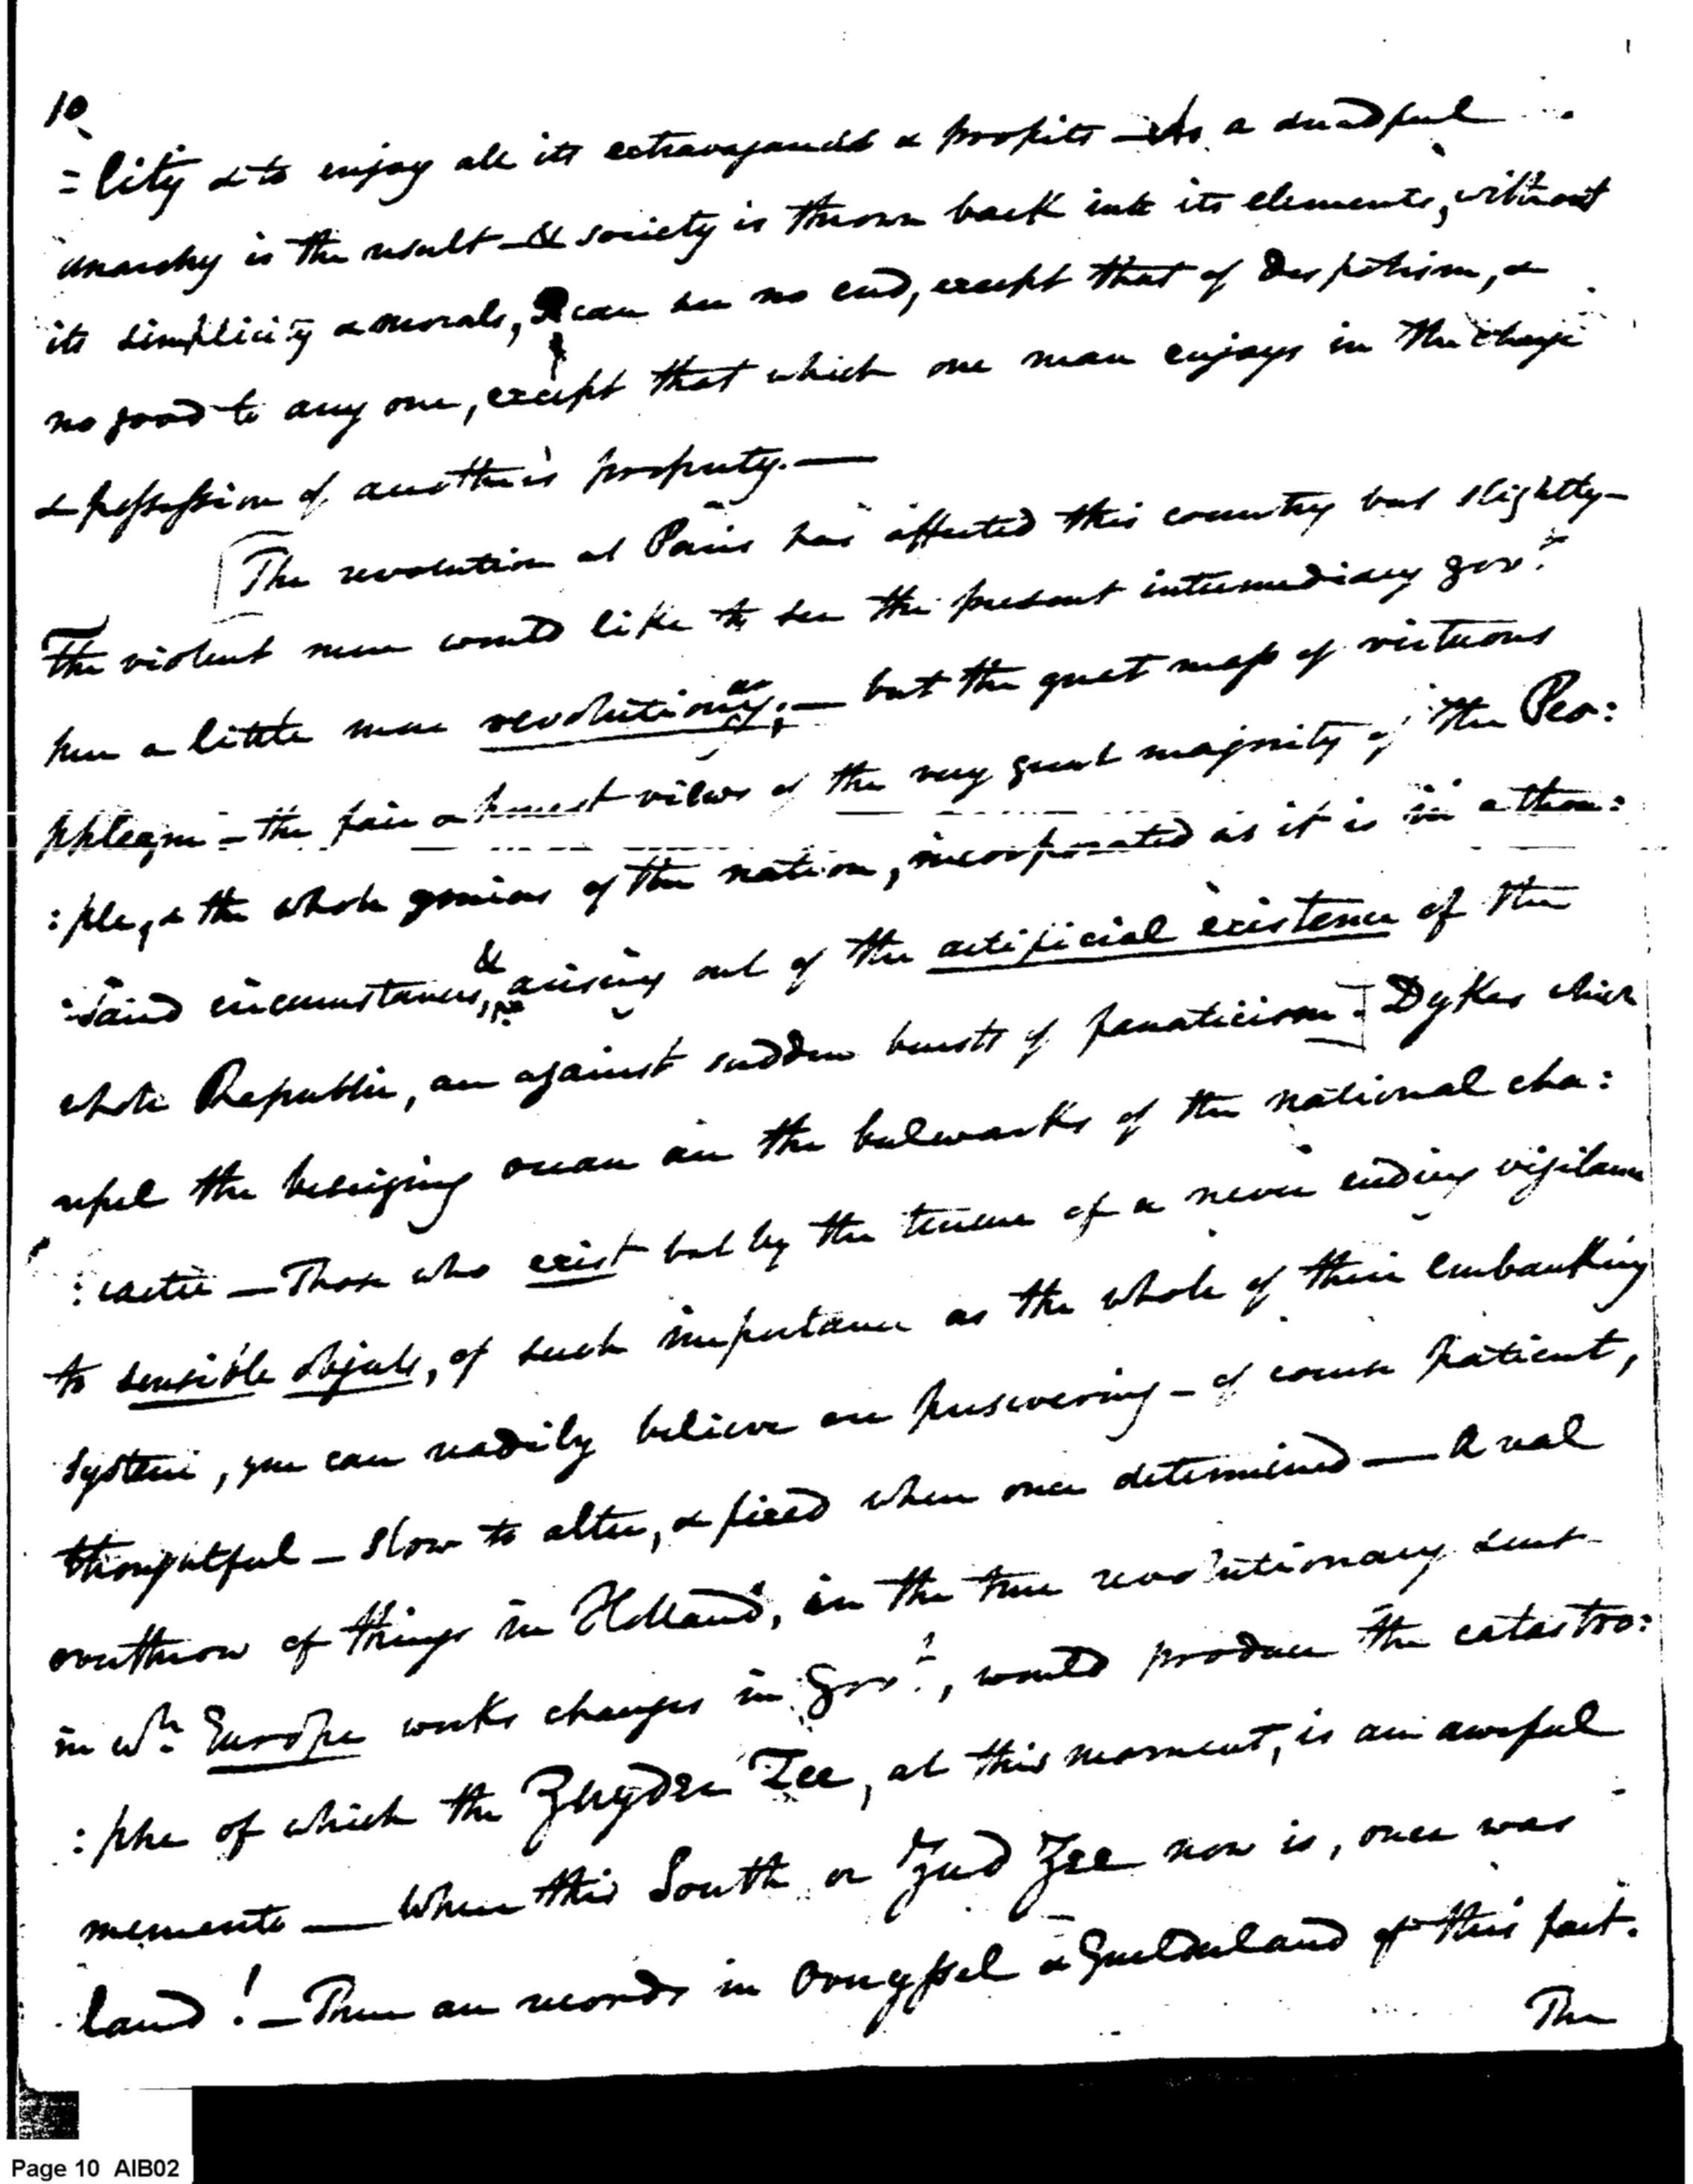 10
=lity & to enjoy all its extravagancies & profits – As a dreadful
anarchy is the result – & society is thrown back into its elements, without
its simplicity & morals, I can see no end, except that of Despotism, &
no good to any one, except that which one man enjoys in the
& possession of another's property. —
[The revolution at Paris has affected this country but slightly –
The violent men would like to see the present intermediary govt.
here a little more revolutionary; – but the quiet mass of virtuous
phlegm – the fair & honest views of the very great majority of the Peo:
:ple, & the whole genius of the nation, incorporated as it is in a thou:
:sand circumstances, & arising out of the artificial existence of the
whole Republic, are against sudden bursts of fanaticism.] Dykes which
repel the besieging ocean are the bulwarks of the national cha:
:racter – Those who exist but by the tenure of a never ending vigilance
to sensible objects, of such importance as the whole of their embanking
system, you can readily believe are persevering – of course patient,
thoughtful – slow to alter, & fixed when once determined — A real
overthrow of things in Holland, in the true revolutionary sense
in wh. Europe works changes in Govt., would produce the catastro:
:phe of which the Zhyder Zee, at this moment, is an awful
memento — Where this South or Zud Zee now is, once was
land! – There are records in Overyssel & Guelderland of this fact.
The
Page 10 AIB02